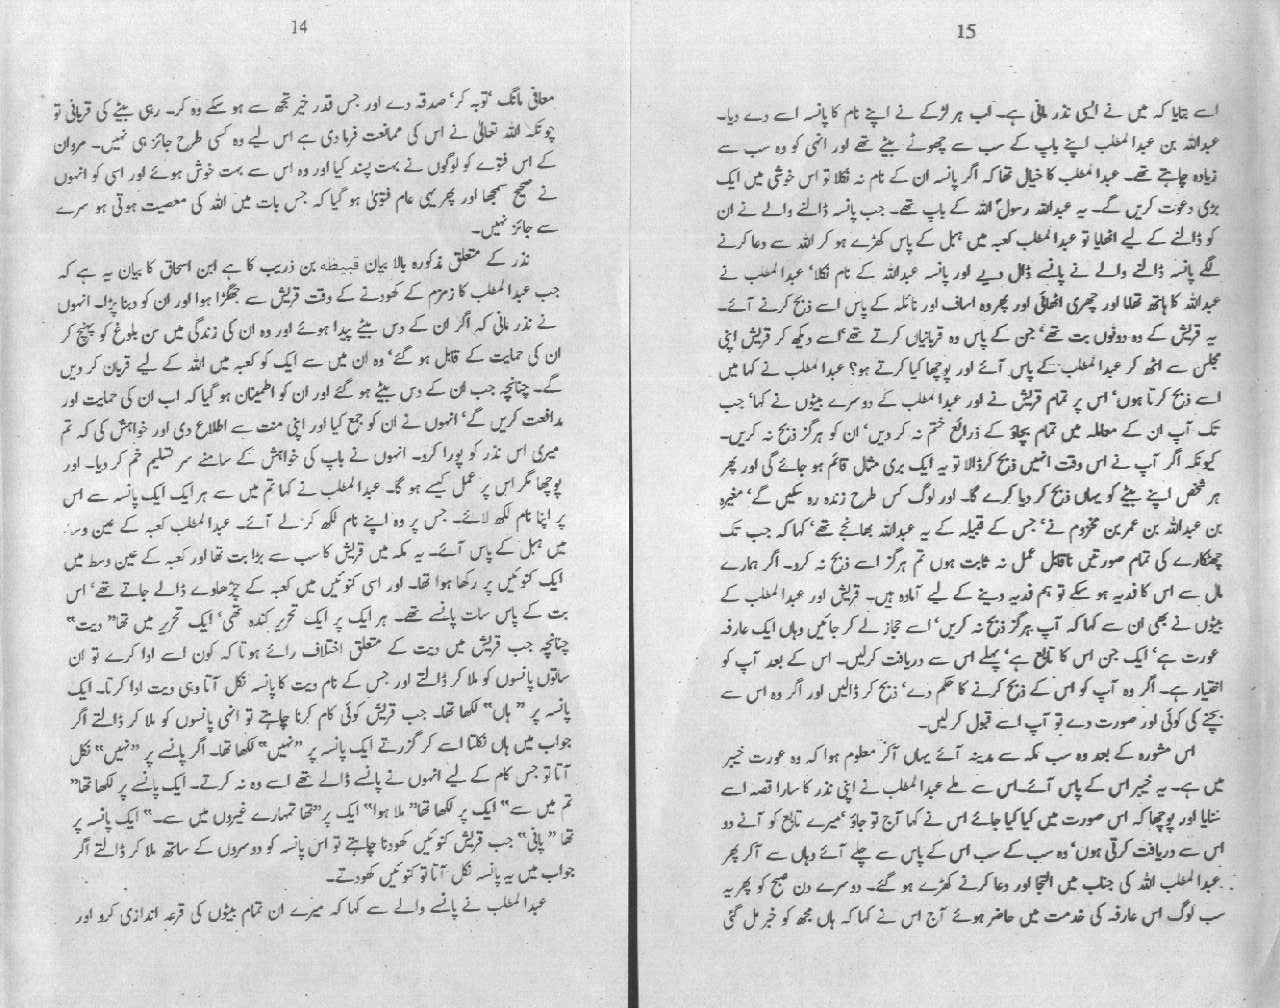 14
معافی مانگ ‘توبہ کر‘ صدقہ دے اور جس قدر خیر تجھ سے ہو سکے وہ کر۔ رہی بیٹے کی قربانی تو
چونکہ اللہ تعالیٰ نے اس کی ممانعت فرما دی ہے اس لیے وہ کسی طرح جائز ہی نہیں۔ مروان
کے اس فتوے کو لوگوں نے بہت پسند کیا اور وہ اس سے بہت خوش ہوئے اور اسی کو انہوں
نے صحیح سمجھا اور پھر یہی عام فتویٰ ہو گیا کہ جس بات میں اللہ کی معصیت ہوتی ہو سرے
سے جائز نہیں۔
نذر کے متعلق مذکورہ بالا بیان قبیطہ بن ذریب کا ہے ابن اسحاق کا بیان یہ ہے کہ
جب عبدالمطلب کا زمزم کے کھودنے کے وقت قریش سے جھگڑا ہوا اور ان کو دبنا پڑا۔ انہوں
نے نذر مانی کہ اگر ان کے دس بیٹے پیدا ہوئے اور وہ ان کی زندگی میں سن بلوغ کو پہنچ کر
ان کی حمایت کے قابل ہو گئے‘ وہ ان میں سے ایک کو کعبہ میں اللہ کے لیے قربان کر دیں
گے۔ چنانچہ جب ان کے دس بیٹے ہو گئے اور ان کو اطمینان ہو گیا کہ اب ان کی حمایت اور
مدافعت کریں گے‘ انہوں نے ان کو جمع کیا اور اپنی منت سے اطلاع دی اور خواہش کی کہ تم
میری اس نذر کو پورا کرو۔ انہوں نے باپ کی خواہش کے سامنے سر تسلیم خم کر دیا۔ اور
پوچھا مگر اس پر عمل کیسے ہو گا۔ عبدالمطلب نے کہا تم میں سے ہر ایک ایک پانسہ سے اس
پر اپنا نام لکھ لائے۔ جس پر وہ اپنے نام لکھ کر لے آئے۔ عبدالمطلب کعبہ کے عین وسط
میں ہبل کے پاس آئے۔ یہ مکہ میں قریش کا سب سے بڑا بت تھا اور کعبہ کے عین وسط میں
ایک کنوئیں پر رکھا ہوا تھا۔ اور اسی کنوئیں میں کعبہ کے چڑھاوے ڈالے جاتے تھے‘ اس
بت کے پاس سات پانسے تھے۔ ہر ایک پر ایک تحریر کندہ تھی‘ ایک تحریر میں تھا“ دیت“
چنانچہ جب قریش میں دیت کے متعلق اختلاف رائے ہوتا کہ کون اسے ادا کرے تو ان
ساتوں پانسوں کو ملا کر ڈالتے اور جس کے نام دیت کا پانسہ نکل آتا وہی دیت ادا کرتا۔ ایک
پانسہ پر “ ہاں“ لکھا تھا۔ جب قریش کوئی کام کرنا چاہتے تو انہی پانسوں کو ملا کر ڈالتے اگر
جواب میں ہاں نکلتا اسے کر گزرتے ایک پانسہ پر “نہیں“ لکھا تھا۔ اگر پانسے پر “نہیں“ نکل
آتا تو جس کام کے لیے انہوں نے پانسے ڈالے تھے اسے وہ نہ کرتے۔ ایک پانسے پر لکھا تھا“
تم میں سے“ ایک پر لکھا تھا“ ملا ہوا“ ایک پر “تھا تمہارے غیروں میں سے۔“ ایک پانسہ پر
تھا “ پانی“ جب قریش کنوئیں کھودنا چاہتے تو اس پانسہ کو دوسروں کے ساتھ ملا کر ڈالتے اگر
جواب میں یہ پانسہ نکل آتا تو کنوئیں کھودتے۔
عبدالمطلب نے پانسے والے سے کہا کہ میرے ان تمام بیٹوں کی قرعہ اندازی کرو اور
15
اسے بتایا کہ میں نے ایسی نذر مانی ہے۔ اب ہر لڑکے نے اپنے نام کا پانسہ اسے دے دیا۔
عبداللہ بن عبدالمطلب اپنے باپ کے سب سے چھوٹے بیٹے تھے اور انہی کو وہ سب سے
زیادہ چاہتے تھے۔ عبدالمطلب کا خیال تھا کہ اگر پانسہ ان کے نام نہ نکلا تو اس خوشی میں ایک
بڑی دعوت کریں گے۔ یہ عبداللہ رسولؐ اللہ کے باپ تھے۔ جب پانسہ ڈالنے والے نے ان
کو ڈالنے کے لیے اٹھایا تو عبدالمطلب کعبہ میں ہبل کے پاس کھڑے ہو کر اللہ سے دعا کرنے
لگے پانسہ ڈالنے والے نے پانسے ڈال دیے اور پانسہ عبداللہ کے نام نکلا‘ عبدالمطلب نے
عبداللہ کا ہاتھ تھاما اور چھری اٹھائی اور پھر وہ اساف اور نائلہ کے پاس اسے ذبح کرنے آئے۔
یہ قریش کے وہ دونوں بت تھے‘ جن کے پاس وہ قربانیاں کرتے تھے‘ اسے دیکھ کر قریش اپنی
مجلس سے اٹھ کر عبدالمطلب کے پاس آئے اور پوچھا کیا کرتے ہو؟ عبدالمطلب نے کہا میں
اسے ذبح کرتا ہوں‘ اس پر تمام قریش نے اور عبدالمطلب کے دوسرے بیٹوں نے کہا‘ جب
تک آپ ان کے معاملہ میں تمام بچاؤ کے ذرائع ختم نہ کر دیں‘ ان کو ہرگز ذبح نہ کریں۔
کیونکہ اگر آپ نے اس وقت انہیں ذبح کر ڈالا تو یہ ایک بری مثال قائم ہو جائے گی اور پھر
ہر شخص اپنے بیٹے کو یہاں ذبح کر دیا کرے گا۔ اور لوگ کس طرح زندہ رہ سکیں گے‘ مغیرہ
بن عبداللہ بن عمر بن مخزوم نے‘ جس کے قبیلہ کے یہ عبداللہ بھانجے تھے‘ کہا کہ جب تک
چھٹکارے کی تمام صورتیں ناقابل عمل نہ ثابت ہوں تم ہرگز اسے ذبح نہ کرو۔ اگر ہمارے
مال سے اس کا فدیہ ہو سکے تو ہم فدیہ دینے کے لیے آمادہ ہیں۔ قریش اور عبدالمطلب کے
بیٹوں نے بھی ان سے کہا کہ آپ ہرگز ذبح نہ کریں‘ اسے حجاز لے کر جائیں وہاں ایک عارفہ
عورت ہے‘ ایک جن اس کا تابع ہے‘ پہلے اس سے دریافت کرلیں۔ اس کے بعد آپ کو
اختیار ہے۔ اگر وہ آپ کو اس کے ذبح کرنے کا حکم دے‘ ذبح کر ڈالیں اور اگر وہ اس سے
بچنے کی کوئی اور صورت دے تو آپ اسے قبول کرلیں۔
اس مشورہ کے بعد وہ سب مکہ سے مدینہ آئے یہاں آکر معلوم ہوا کہ وہ عورت خیبر
میں ہے۔ یہ خیبر اس کے پاس آئے۔ اس سے ملے عبدالمطلب نے اپنی نذر کا سارا قصہ اسے
سنایا اور پوچھا کہ اس صورت میں کیا کیا جائے اس نے کہا آج تو جاؤ ‘میرے تابع کو آنے دو
اس سے دریافت کرتی ہوں‘ وہ سب کے سب اس کے پاس سے چلے آئے وہاں سے آکر پھر
عبدالمطلب اللہ کی جناب میں التجا اور دعا کرنے کھڑے ہو گئے۔ دوسرے دن صبح کو پھر یہ
سب لوگ اس عارفہ کی خدمت میں حاضر ہوئے آج اس نے کہا کہ ہاں مجھ کو خبر مل گئی